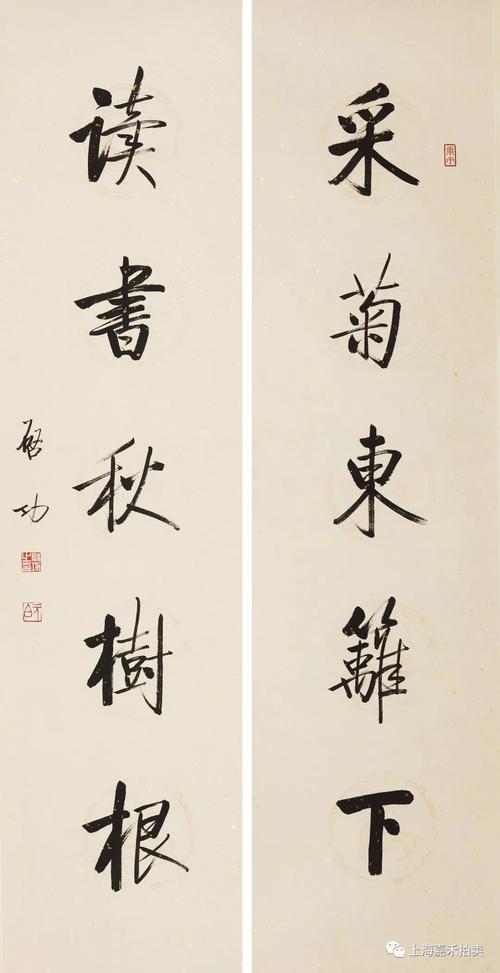 采菊東籬下
读書秋樹根
启功
上海嘉禾拍卖